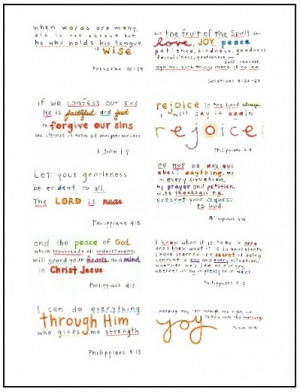 when words are many,
sin is not absent but
he who holds his tongue
is wise
Proverbs 10:19
the fruit of the Spirit is
love, JOY, peace
patience, kindness, goodness
faithfulness, gentleness,
self control.
against such things there is no law
Galatians 5:22-23
if we confess our sins
He is faithful and just
to forgive our sins
and cleanse us from all unrighteousness
1 John 1:9
rejoice in the Lord always
I will say it again
rejoice!
Philippians 4:4
Let your gentleness
be evident to all.
The LORD is near
Philippians 4:5
do not be anxious
about anything,
in every situation,
by prayer and petition,
with thanksgiving,
your requests
to God.
and the peace of God,
which transcends all understanding
will guard your hearts and mind
in Christ Jesus
Philippians 4:7
I know what it is to
secret of being
content in any and every situation
I can do everything
through Him
who gives me strength
Philippians 4:13
weeping may last through the night, but
joy